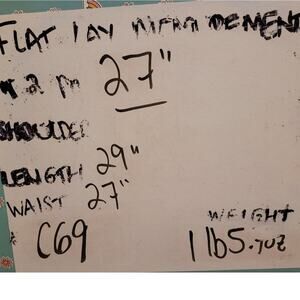 FLAT LAY MEASUREMENT
27"
SHOULDER
LENGTH 29"
WAIST 27"
C69
WEIGHT
1 lb 5.7oz